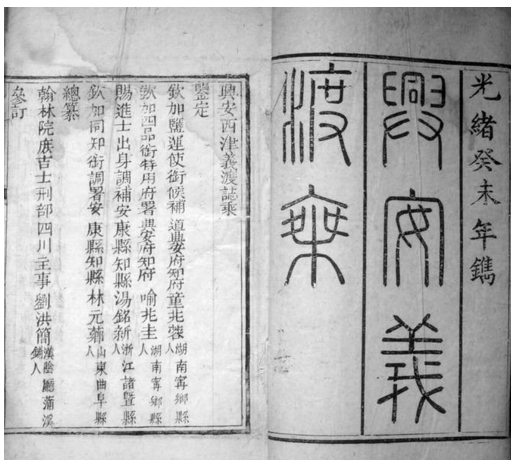 光緒癸未年鐫
興安義
渡乘
興安西津義渡誌乘
鑒定
欽加鹽運使銜候補道興安府知府童兆蓉湖南寧鄉縣人
欽加四品銜特用府署興安府知府喻兆圭湖南寧鄉縣人
賜進士出身調補安康縣知縣湯銘新浙江諸暨縣人
欽加同知銜調署安康縣知縣林元薌山東曲阜縣人
總纂
翰林院庶吉士刑部四川主事劉洪簡漢陰廳蒲溪鋪人
參訂